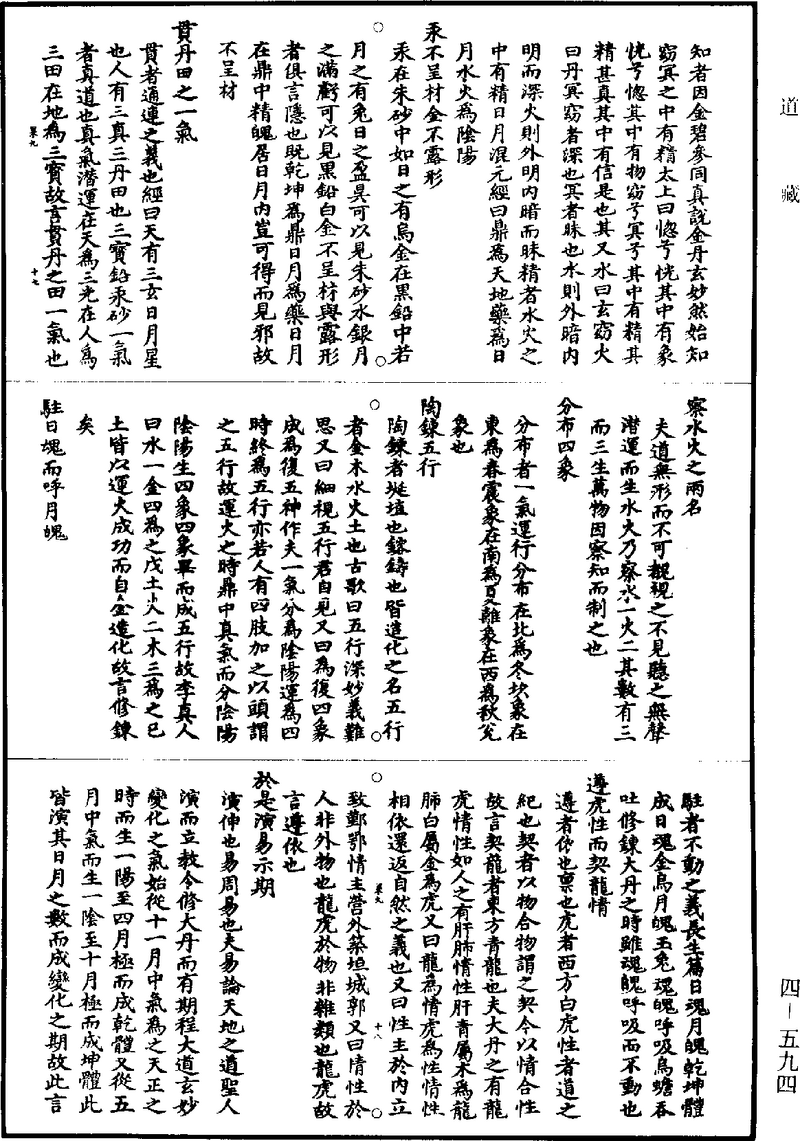 道藏
知者因金碧參同真說金丹玄妙然始知
窈冥之中有精太上曰惚兮恍其中有象
恍兮惚其中有物窈兮冥兮其中有精其
精甚真其中有信是也其又水曰玄窈火
曰丹冥窈者深也冥者昧也水則外暗內
明而深火則外明內暗而昧精者水火之
中有精日月混元經曰鼎為天地藥為日
月水火為陰陽
汞不呈材金不露形
汞在朱砂中如日之有烏金在黑鉛中若
月之有兔日之盈昃可以見朱砂水銀月
之滿虧可以見黑鉛白金不呈材與露形
者俱言隱也既乾坤為鼎日月為藥日月
在鼎中精魄居日月內豈可得而見邪故
不呈材
貫丹田之一氣
貫者通連之義也經曰天有三玄日月星
也人有三真三丹田也三寶鉛汞砂一氣
者真道也真氣潛運在天為三光在人為
三田在地為三寶故言貫丹之田一氣也
菜九
十七
察水火之兩名
夫道無形而不可覩視之不見聽之無聲
潛運而生水火乃察水一火二其數有三
而三生萬物因察知而制之也
分布四象
分布者一氣運行分布在北為冬坎象在
東為春震象在南為夏離象在西為秋兌
象也
陶鍊五行
陶鍊者埏埴也鎔鑄也皆造化之名五行
者金木水火土也古歌曰五行深妙義難
思又曰細視五行君自見又曰為復四象
成為復五神作夫一氣分為陰陽運為四
時終為五行亦若人有四肢加之以頭謂
之五行故運火之時鼎中真氣而分陰陽
陰陽生四象四象畢而成五行故李真人
曰水一金四為之戊土火二木三為之已
土皆以運火成功而自合造化故言修鍊
矣
駐日魂而呼月魄
駐者不動之義長生篇日魂月魄乾坤體
成日魂金烏月魄玉兔魂魄呼吸烏蟾吞
吐修鍊大丹之時雖魂魄呼吸而不動也
遵虎性而契龍情
遵者仰也稟也虎者西方白虎性者道之
紀也契者以物合物謂之契今以情合性
故言契龍者東方青龍也夫大丹之有龍
虎情性如人之有肝肺情性肝青屬木為龍
肺白屬金為虎又曰龍為情虎為性情性
相依還返自然之義也又曰性主於內立
菜九
十八
致鄞鄂情主營外築垣城郭又曰情性於
人非外物也龍虎於物非雜類也龍虎故
言遵依也
於是演易示期
演伸也易周易也夫易論天地之道聖人
演而立教今修大丹而有期程大道玄妙
變化之氣始從十一月中氣為之天正之
時而生一陽至四月極而成乾體又從五
月中氣而生一陰至十月極而成坤體此
皆演其日月之數而成變化之期故此言
四－五九四